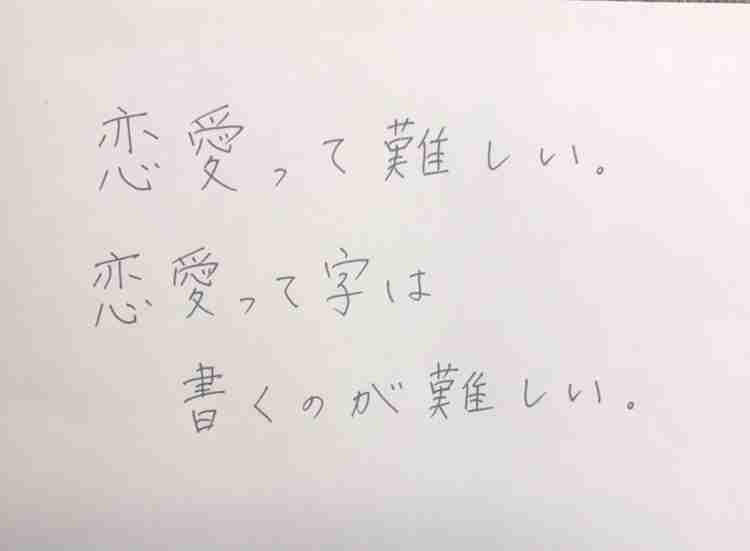 恋愛って難しい。
恋愛って字は
書くのが難しい。